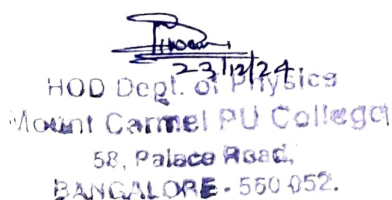 23/12/24
HOD Dept. of Physics
Mount Carmel PU College
58, Palace Road,
BANGALORE - 560 052.